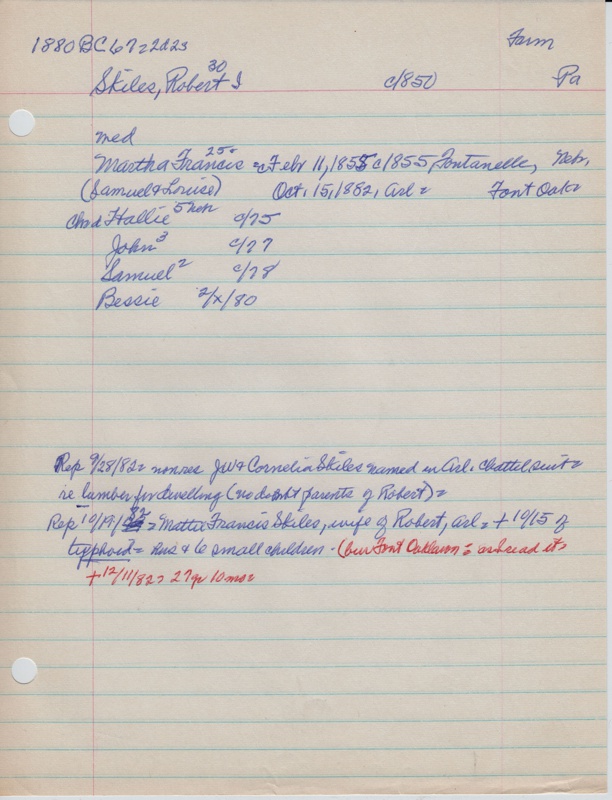 1880 BC 67=22 23 Farm
Skiles, Robert I 30 c/850 Pa
med
Martha Francis 25= Febr 11, 1855 c1855 Fontanelle, Nebr,
(Samuel & Louise) Oct. 15, 1882, Arl= Font Oak=
chd Hallie 5 neb c/75
John 3 c/77
Samuel 2 c/78
Bessie 2/x/80
Rep 9/28/82= nonres JW & Cornelia Skiles named in Arl. chattel suit=
re lumber for dwelling (no doubt parents of Robert)=
Rep 10/19/82= Mattie Francis Skiles, wife of Robert, Arl= + 10/15 of
typhoid= hus & 6 small children - (bur Font Oaklawn = as read it=
+ 12/11/82= 27yr 10mo=